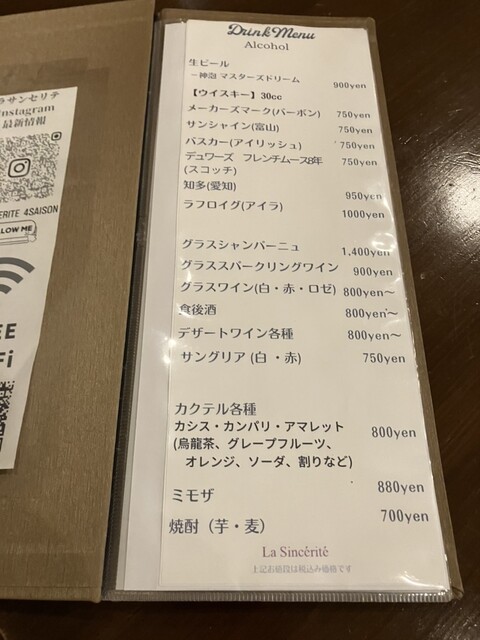 ラサンセリテ
Instagram
最新情報
ERITE 4SAISON
LLOW ME
EE
Fi
Drink Menu
Alcohol
生ビール
－神泡 マスターズドリーム 900yen
【ウイスキー】30cc
メーカーズマーク(バーボン) 750yen
サンシャイン(富山) 750yen
バスカー(アイリッシュ) 750yen
デュワーズ フレンチムース8年 750yen
(スコッチ)
知多(愛知) 950yen
ラフロイグ(アイラ) 1000yen
グラスシャンパーニュ 1,400yen
グラススパークリングワイン 900yen
グラスワイン(白・赤・ロゼ) 800yen～
食後酒 800yen～
デザートワイン各種 800yen～
サングリア (白・赤) 750yen
カクテル各種
カシス・カンパリ・アマレット 800yen
(烏龍茶、グレープフルーツ、
オレンジ、ソーダ、割りなど)
ミモザ 880yen
焼酎（芋・麦） 700yen
La Sincérité
上記お値段は税込み価格です